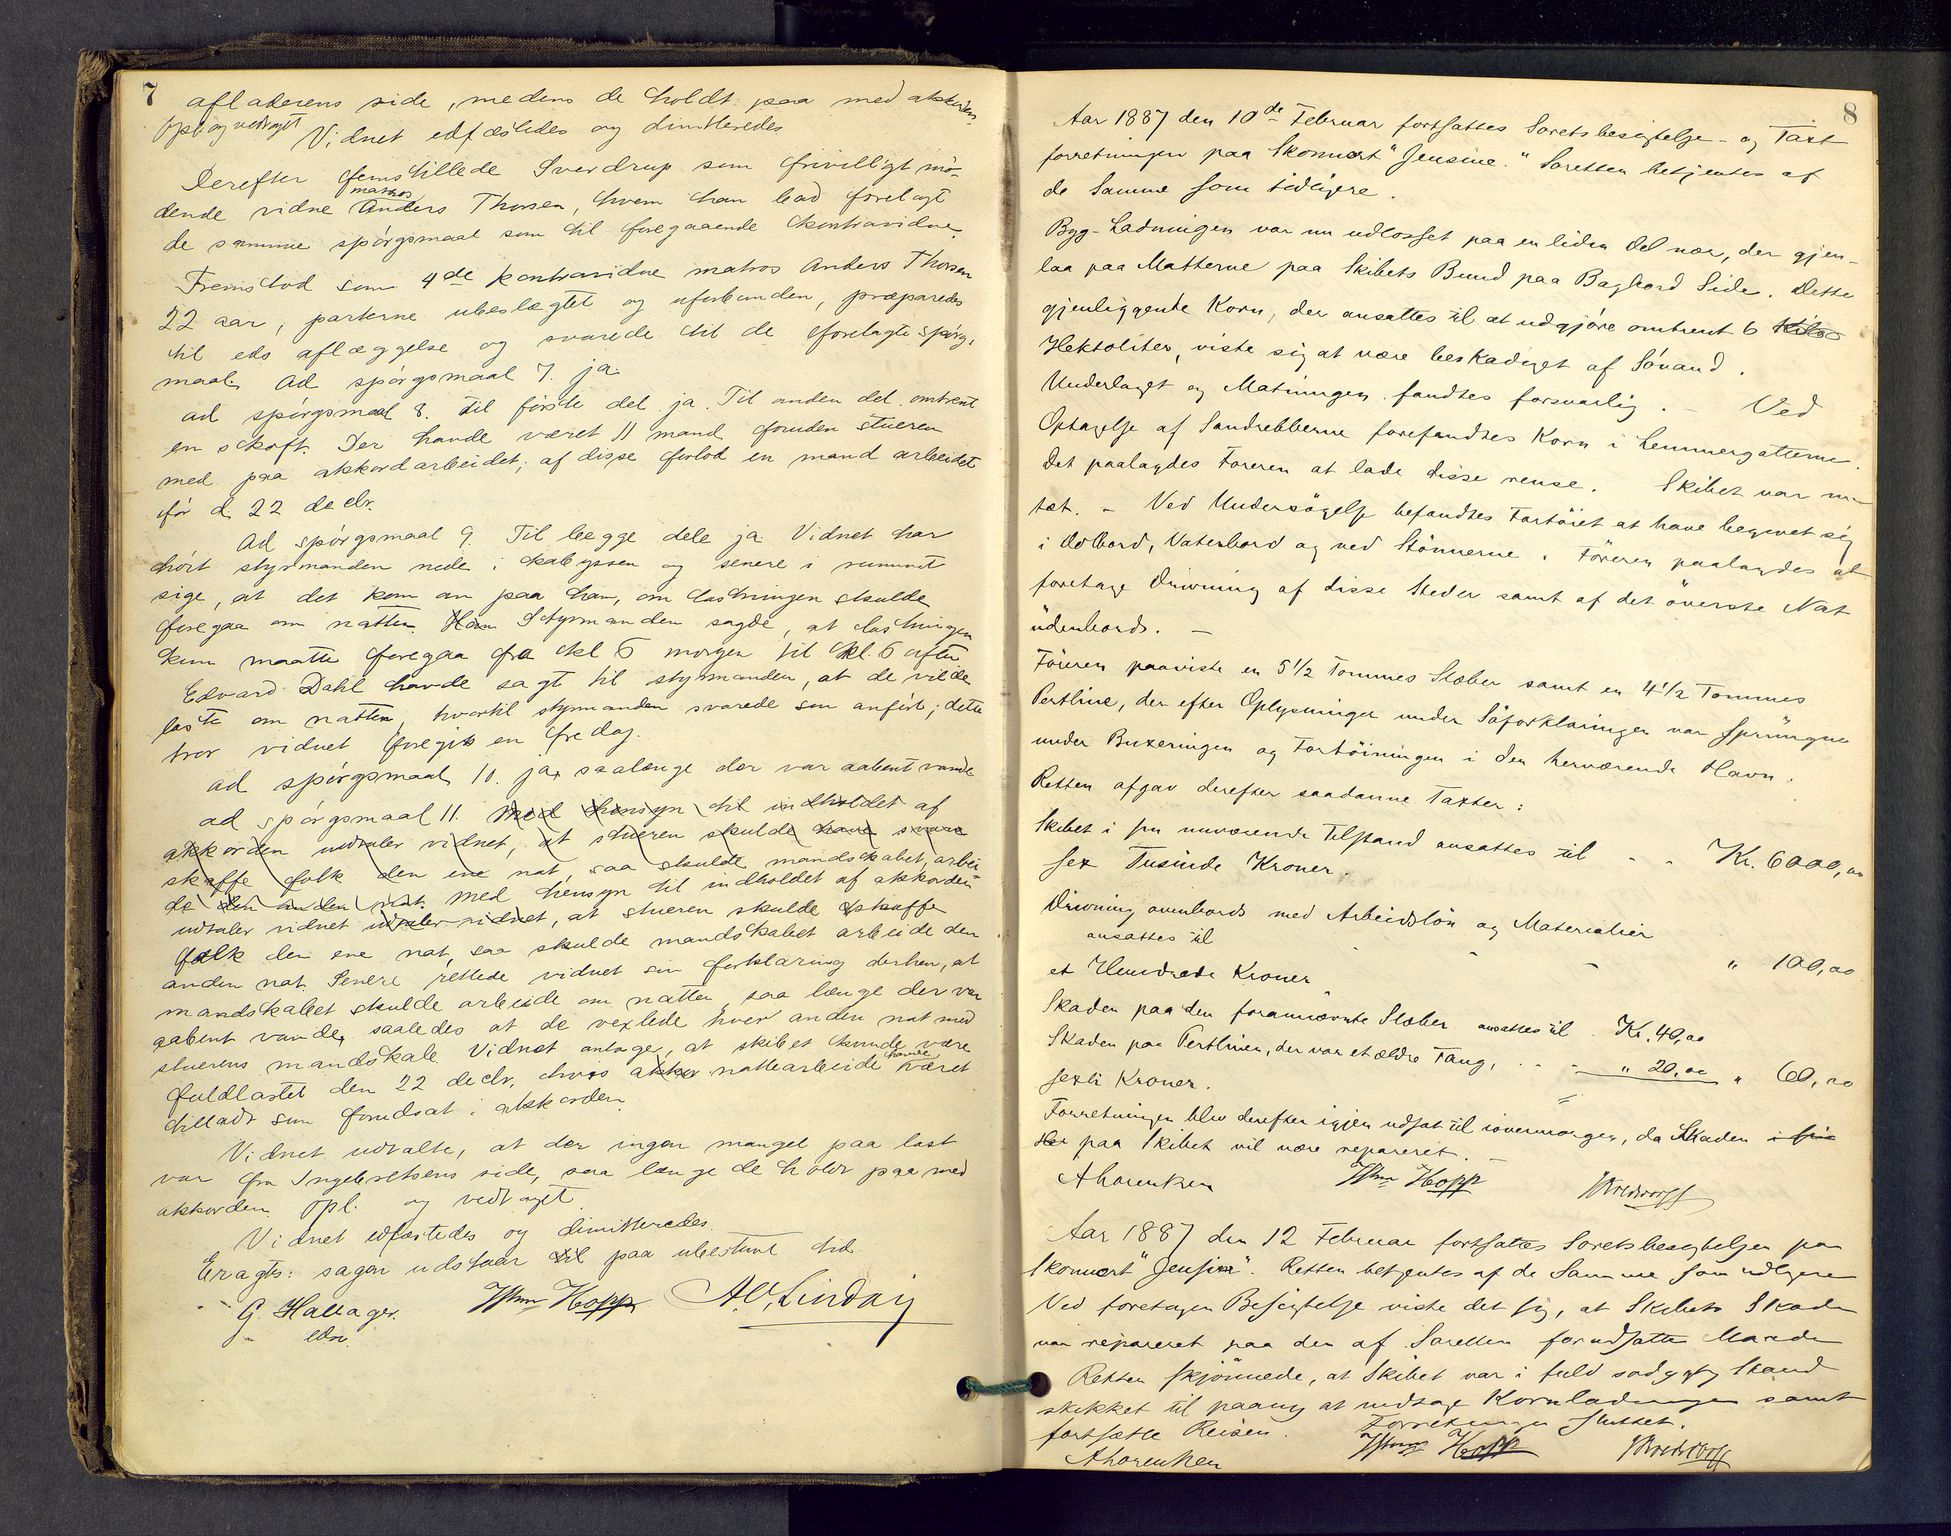 7
afladerens side, medens de holdt paa med akkorden.
Opl. og vedtaget
Vidnet edfæstedes og dimitteredes
Derefter fremstillede Sverdrup som frivilligt mø-
matros
dende vidne Anders Thorsen, hvem han bad forelagt
de samme spørgsmaal som til foregaaende kontravidne.
Fremstod som 4de kontravidne matros Anders Thorsen
22 aar, parterne ubeslægtet og uforbunden, præparedes
til eds aflæggelse og svarede til de forelagte spørgs-
maal. Ad spørgsmaal 7. ja
ad spørgsmaal 8. Til første del ja. Til anden del omtrent
en skoft. Der havde været 11 mand foruden stueren
med paa akkordarbeidet; af disse forlod en mand arbeidet
før d. 22 decbr.
Ad spørgsmaal 9. Til begge dele ja. Vidnet har
hørt styrmanden nede i kabyssen og senere i rummet
sige, at det kom an paa ham, om lastningen skulde
foregaa om natten. Han Styrmanden sagde, at lastningen
kun maatte foregaa fra kl 6 morgen til kl. 6 aften
Edvard Dahl havde sagt til styrmanden, at de vilde
laste om natten, hvortil styrmanden svarede som anført; dette
tror vidnet foregik en fredag.
ad spørgsmaal 10. ja, saalænge der var aabent vande
ad spørgsmaal 11. Med hensyn til indholdet af
akkorden udtaler vidnet, at stueren skulde have svare
skaffe folk den ene nat, saa skulde mandskabet arbei-
de den anden nat. Med hensyn til indholdet af akkorden
udtaler vidnet udtaler vidnet, at stueren skulde skaffe
folk den ene nat, saa skulde mandskabet arbeide den
anden nat. Senere rettede vidnet sin forklaring derhen, at
mandskabet skulde arbeide om natten, saa længe der var
aabent vande, saaledes at de vexlede hver anden nat med
stuerens mandskab. Vidnet antager, at skibet kunde være
fuldlastet den 22 decbr, hvis akko nattearbeide havde været
tilladt som forudsat i akkorden.
Vidnet udtalte, at der ingen mangel paa last
var fra Ingebretsens side, saa længe de holdt paa med
akkorden. Opl. og vedtaget
Vidnet edfæstedes og dimitteredes.
Eragts: sagen udstaar til paa ubestemt tid.
G. Hallager. Wm Hopp A.O. Lindvig
edsv.
8
Aar 1887 den 10de Februar fortsattes Søretsbesigtelse- og Taxt
forretningen paa Skonnert "Jensine." Søretten betjentes af
de Samme som tidligere.
Byg-Ladningen var nu udlosset paa en liden Del nær, der gjen-
laa paa Matterne paa Skibets Bund paa Bagbord Side. Dette
gjenliggende Korn, der ansattes til at udgjøre omtrent 6 Kilo
Hektoliter, viste sig at være beskadiget af Søvand.
Underlaget og Matningen fandtes forsvarlig. – Ved
Optagelse af Sandrebberne forefandtes Korn i Lemmergatterne.
Det paalagdes Føreren at lade disse rense. Skibet var nu
tæt. – Ved Undersøgelse befandtes Fartøiet at have begivet sig
i Dolbord, Vaterbord og ved Stønnerne. Føreren paalagdes at
foretage Drivning af disse Steder samt af det øverste Nat
udenbords. –
Føreren paaviste en 5 1/2 Tommes Slæber samt en 4 1/2 Tommes
Pertline, der efter Oplysninger under Søforklaringen var sprungne
under Buxeringen og Fortøiningen i den herværende Havn.
Retten afgav derefter saadanne Taxter:
Skibet i sin nuværende Tilstand ansattes til - - Kr. 6000,00
sex Tusinde Kroner.
Drivning ovenbords med Arbeidsløn og Materialier
ansattes til - - " 100,00
et Hundrede Kroner
Skaden paa den forannævnte Slæber ansattes til Kr. 40,00
Skaden paa Pertlinen, der var et ældre Taug, . . - " 20,00 " 60,00
sexti Kroner.
Forretningen blev derefter igjen udsat til iovermorgen, da Skaden i sin
Hel paa Skibet vil være repareret. –
A Lorentzen Wm Hopp
Aar 1887 den 12 Februar fortsattes Søretsbesigtelsen paa
Skonnert "Jensine". Retten betjentes af de Samme som tidligere
Ved foretagen Besigtelse viste det sig, at Skibets Skade
var repareret paa den af Søretten forudsatte Maade
Retten skjønnede, at Skibet var i fuld sødygtig Stand
skikket til paany at indtage Kornladningen samt
fortsætte Reisen. Forretningen sluttet.
A Lorentzen Wm Hopp